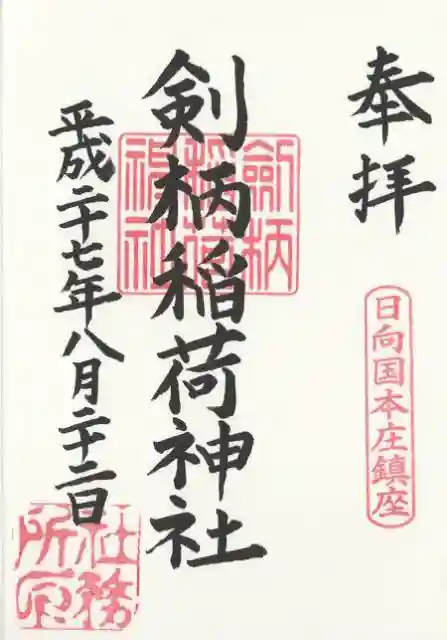 奉拝
日向国本庄鎮座
剣柄稲荷神社
劔柄稲荷神社
平成二十七年八月二十二日
社務所印